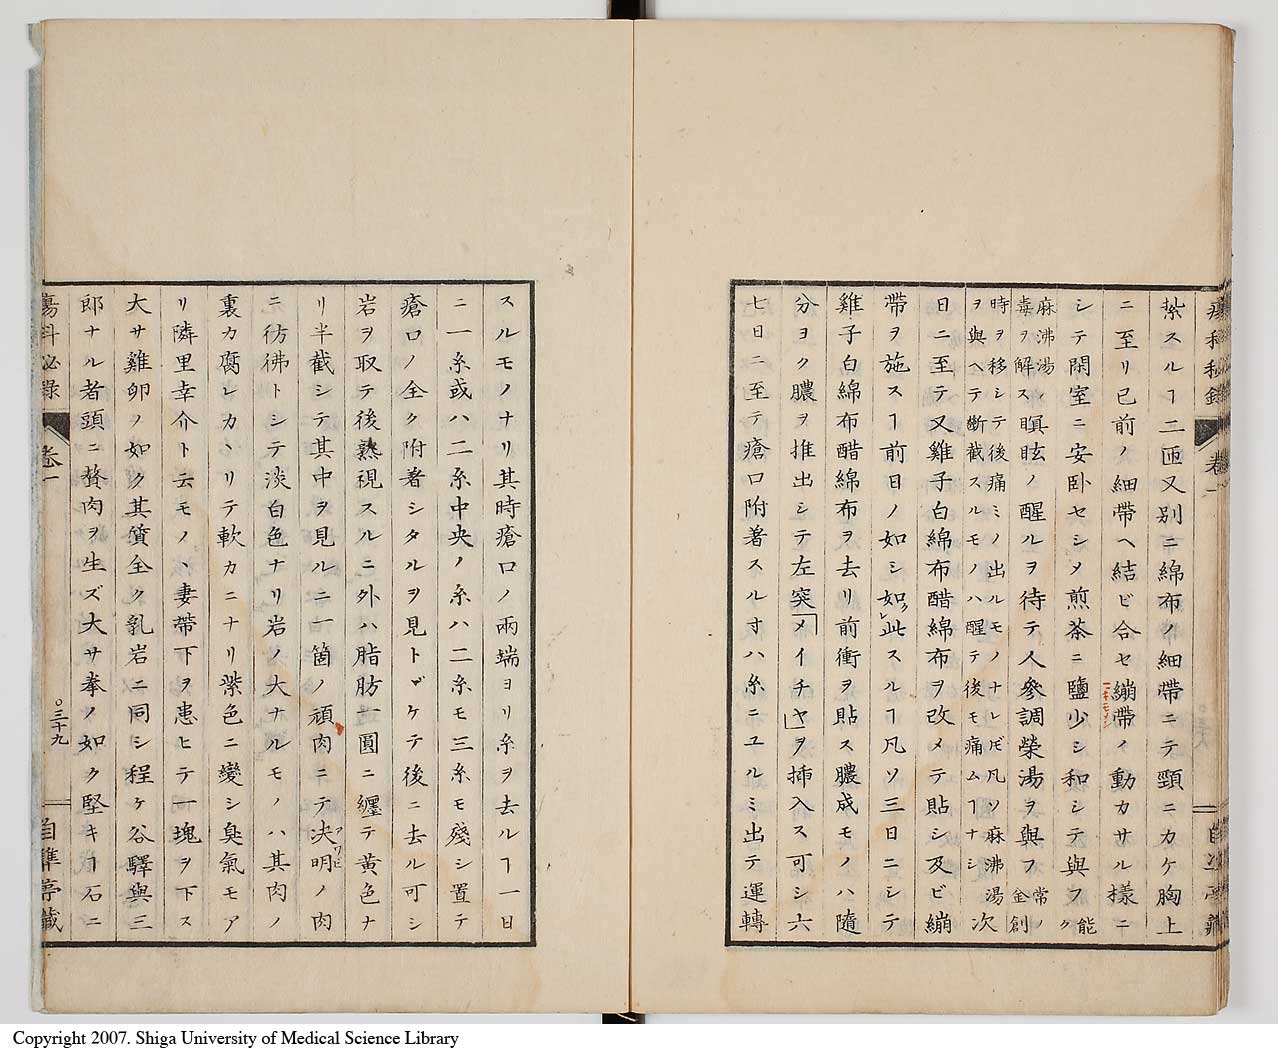 瘍科秘録 卷一
紮スルヿ二匝又別ニ綿布ノ細帶ニテ頸ニカケ胸上
ニ至リ已前ノ細帶ヘ結ビ合セ繃帶ノ動カサル様ニ
一本モメン
シテ閑室ニ安卧セシメ煎茶ニ鹽少シ和シテ與フ能ク
麻沸湯ノ毒ヲ解ス瞑眩ノ醒ルヲ待テ人參調榮湯ヲ與フ常ノ金創
時ヲ移シテ後痛ミノ出ルモノナレドモ凡ソ麻沸湯
ヲ與ヘテ斷截スルモノハ醒テ後モ痛ムヿナシ次
日ニ至テ又雞子白綿布醋綿布ヲ改メテ貼シ及ビ繃
帶ヲ施スヿ前日ノ如シ如此スルヿ凡ソ三日ニシテ
雞子白綿布醋綿布ヲ去リ前衝ヲ貼ス膿成モノハ隨
分ヨク膿ヲ推出シテ左突「メイチヤ」ヲ挿入ス可シ六
七日ニ至テ瘡口附著スル寸ハ糸ニユルミ出テ運轉
スルモノナリ其時瘡口ノ兩端ヨリ糸ヲ去ルヿ一日
ニ一糸或ハ二糸中央ノ糸ハ二糸モ三糸モ殘シ置テ
瘡口ノ全ク附著シタルヲ見トヾケテ後ニ去ル可シ
岩ヲ取テ後熟視スルニ外ハ脂肪一圓ニ纏テ黄色ナ
リ半截シテ其中ヲ見ルニ一箇ノ頑肉ニテ决明ノ肉
アワビ
ニ彷彿トシテ淡白色ナリ岩ノ大ナルモノハ其肉ノ
裏カ腐レカヽリテ軟カニナリ紫色ニ變シ臭氣モア
リ隣里幸介ト云モノヽ妻帶下ヲ患ヒテ一塊ヲ下ス
大サ雞卵ノ如ク其質全ク乳岩ニ同シ程ケ谷驛與三
郎ナル者頭ニ贅肉ヲ生ズ大サ拳ノ如ク堅キヿ石ニ
瘍科秘録 卷一 ○三十九 自準亭藏
Copyright 2007. Shiga University of Medical Science Library